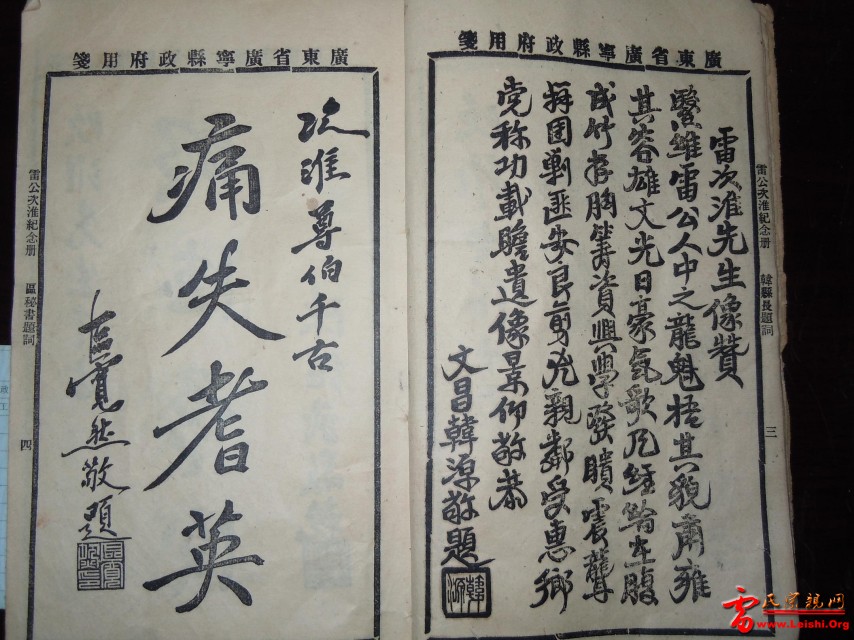 廣東省廣寧縣政府用箋
雷公次淮紀念册 韓縣長題詞 三
雷次淮先生像贊
繄維雷公人中之龍魁梧其貌肅雍
其容雄文光日豪氣歌 經綸在腹
成竹存胸籌資興學發瞶震聾
捍圉剿匪安良剪兇親鄰受惠鄉
党称功載瞻遺像景仰敬恭
文昌韓源敬題
韓源
廣東省廣寧縣政府用箋
次淮尊伯千古
痛失耆英
然敬題
雷公次淮紀念册 區秘書題詞 四
雷氏宗親网
www.Leishi.Org